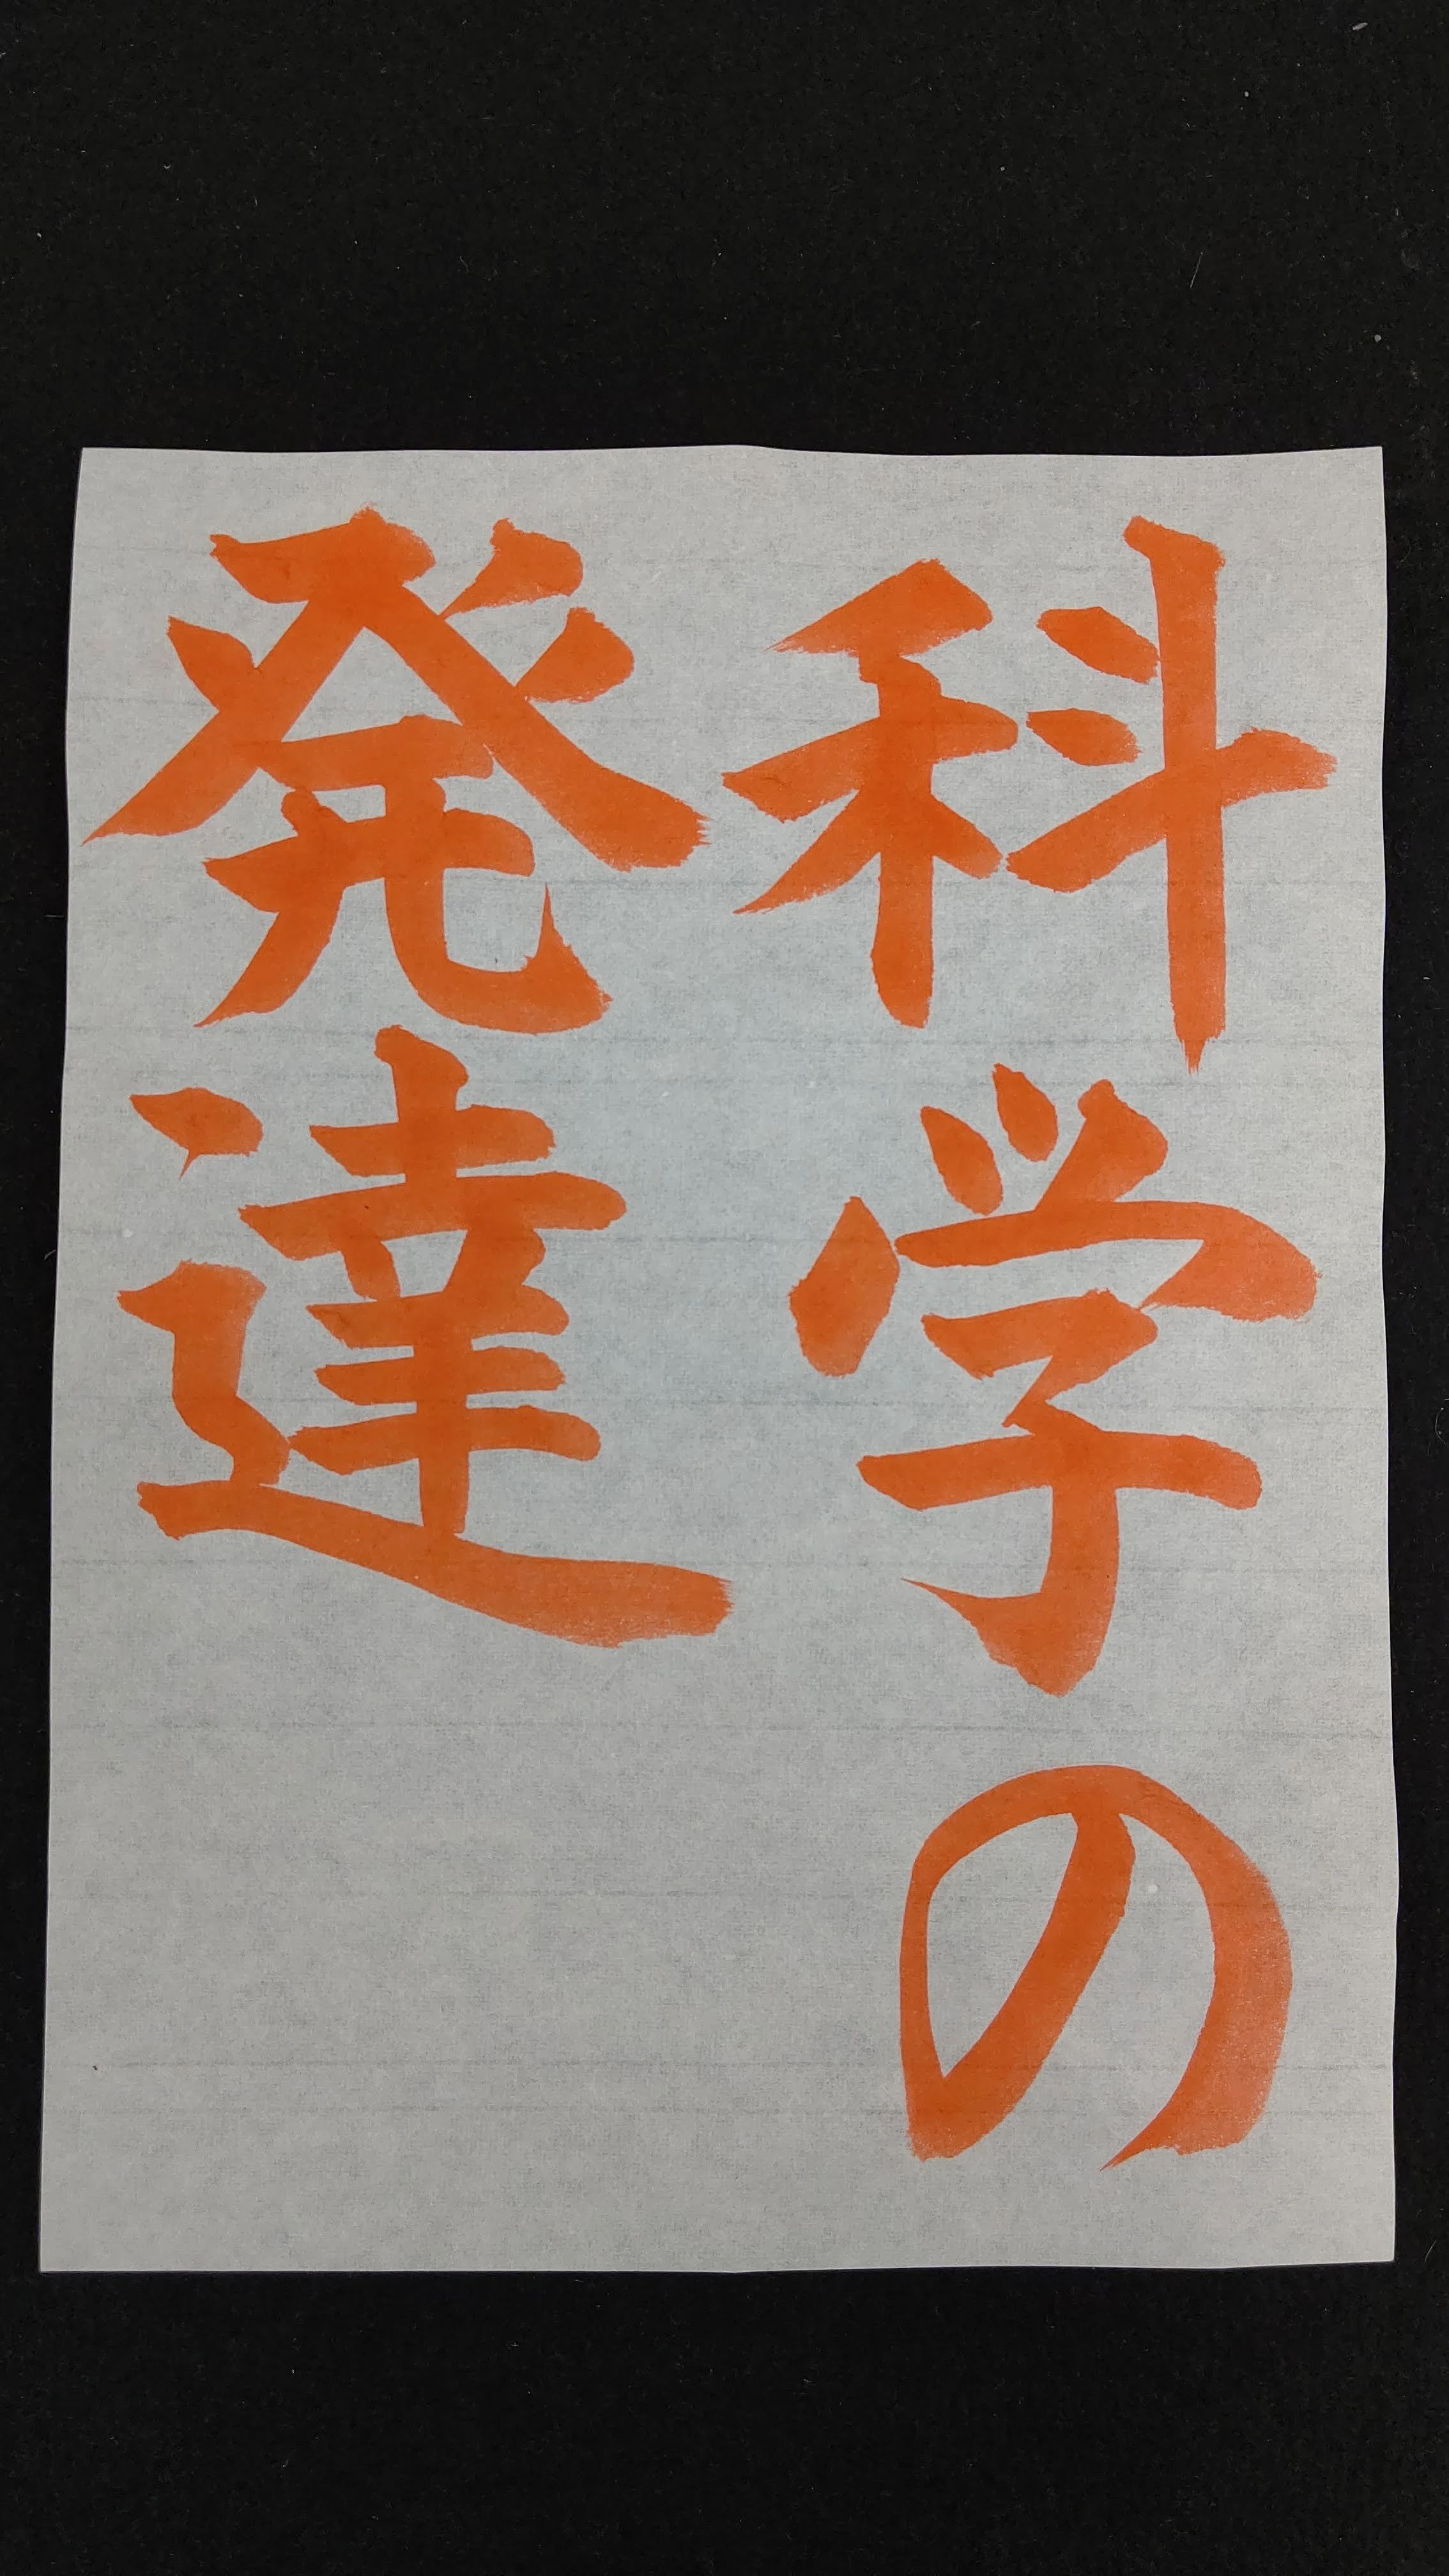 科学の
発達